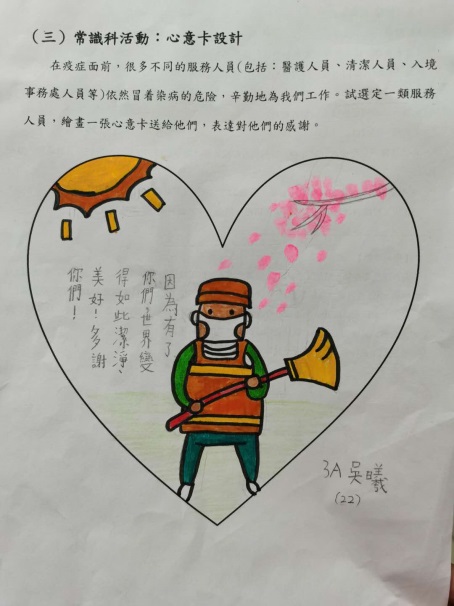 （三）常識科活動：心意卡設計
在疫症面前，很多不同的服務人員(包括：醫護人員、清潔人員、入境
事務處人員等)依然冒着染病的危險，辛勤地為我們工作。試選定一類服務
人員，繪畫一張心意卡送給他們，表達對他們的感謝。
因為有了
你們，世界變
得如此潔淨、
美好！多謝
你們！
3A 吳曦
(22)